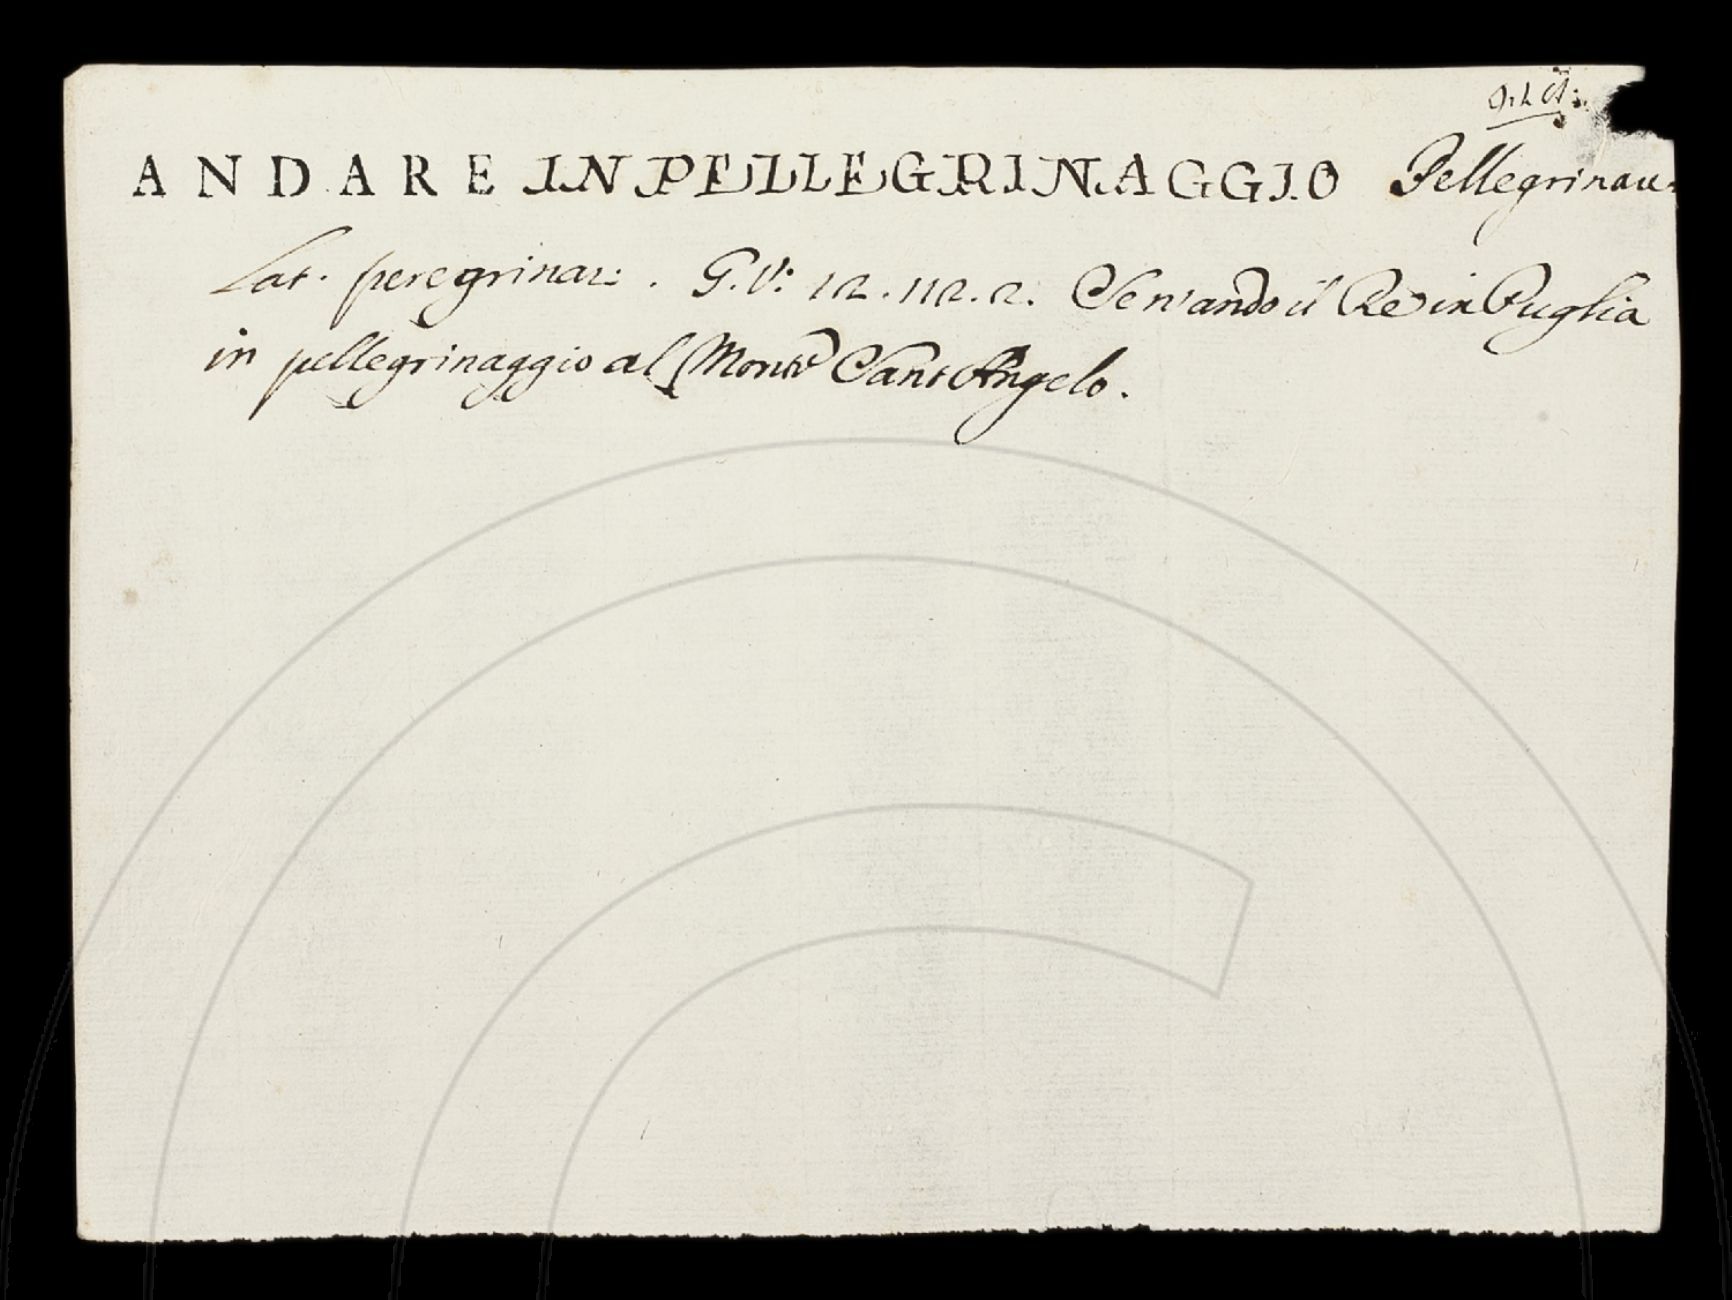 ANDARE IN PELLEGRINAGGIO Pellegrinar:
Lat. peregrinar: . G.V: 12.112.2. Se n'andò il Re in Puglia
in pellegrinaggio al Monte Sant Angelo.